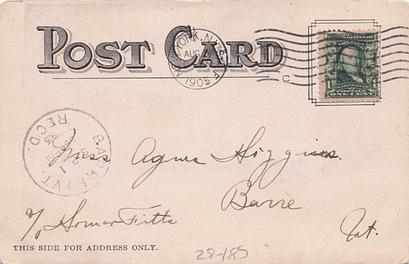 POST CARD
NEW YORK, N.Y.
AUG
1905
BARRE, VT.
REC'D.
Miss Agnes Higgins.
Barre
Vt.
℅ Homer Fitts
THIS SIDE FOR ADDRESS ONLY.
28-185